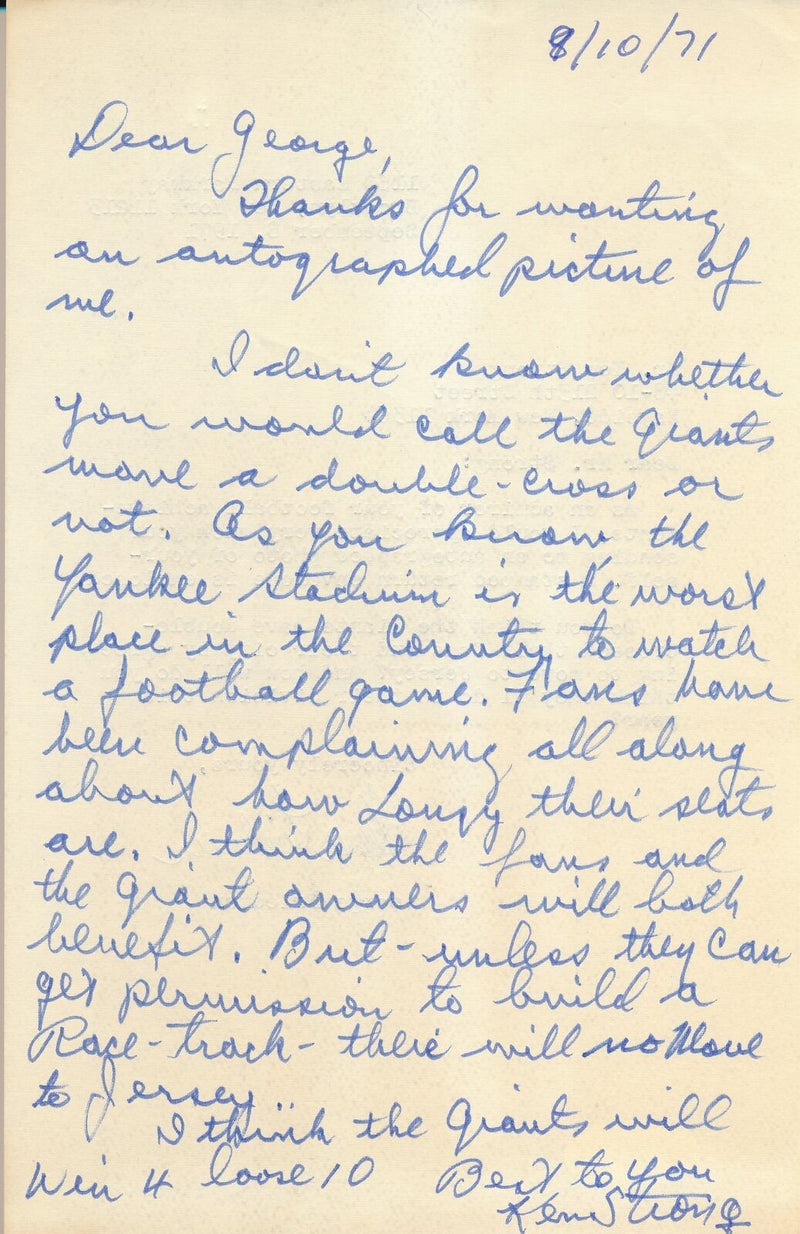 9/10/71
Dear George,
Thanks for wanting
an autographed picture of
me.
I don't know whether
you would call the Giants
move a double-cross or
not. As you know, the
Yankee Stadium is the worst
place in the Country to watch
a football game. Fans have
been complaining all along
about how Lousy their seats
are. I think the fans and
the Giant owners will both
benefit. But - unless they can
get permission to build a
Race-track - there will no Move
to Jersey.
I think the Giants will
Win 4 loose 10 Best to you
Ken Strong